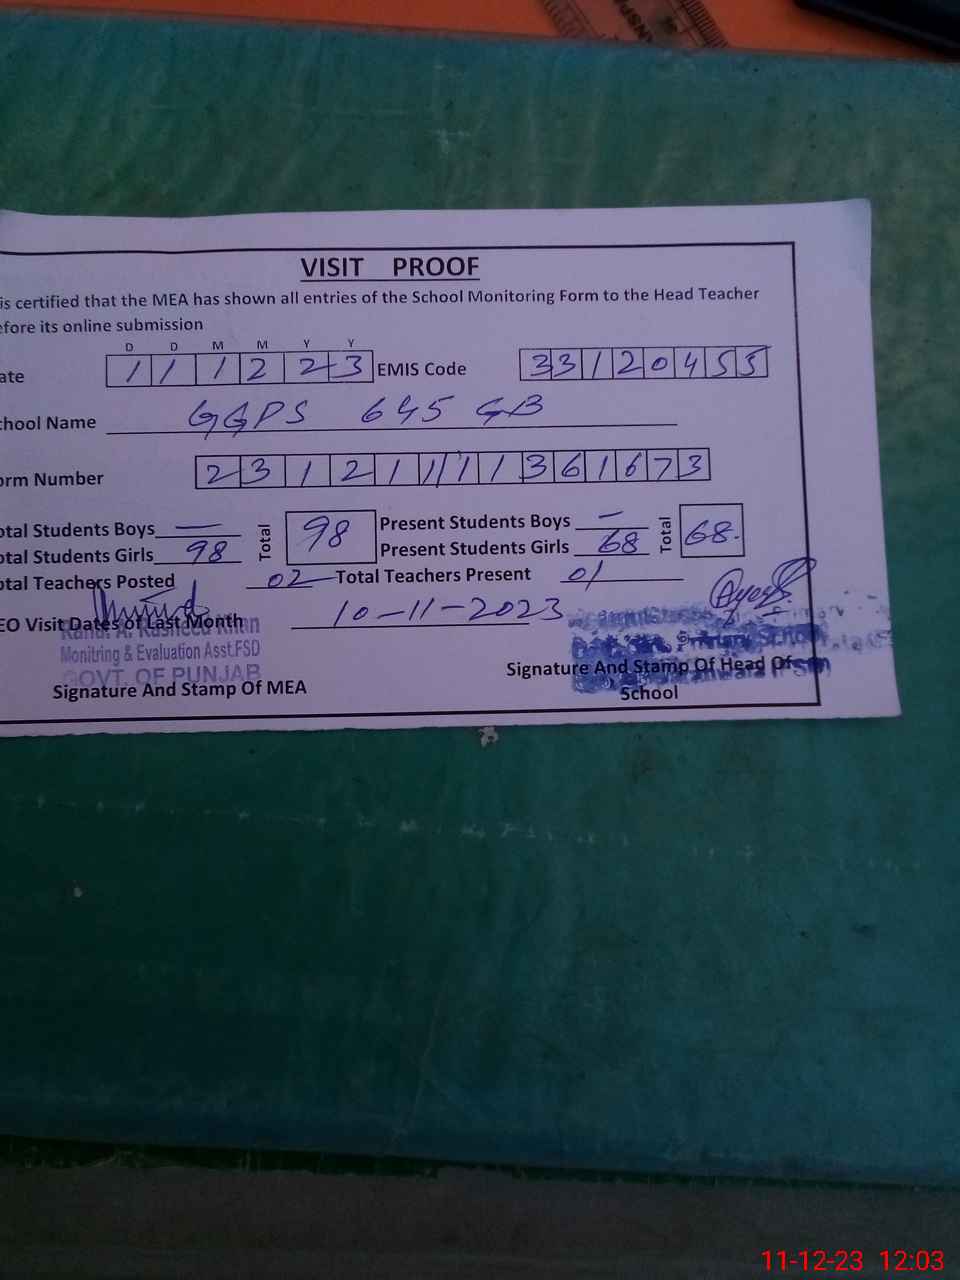 VISIT PROOF
is certified that the MEA has shown all entries of the School Monitoring Form to the Head Teacher
efore its online submission
D D M M Y Y
ate 11 12 23 EMIS Code 33120455
chool Name GGPS 645 GB
orm Number 23121111361673
otal Students Boys — Total 98 Present Students Boys — Total 68
otal Students Girls 98 Present Students Girls 68
otal Teachers Posted 02 Total Teachers Present 01
EO Visit Dates of Last Month 10-11-2023
Rana A. Rasheed Khan
Monitring & Evaluation Asst.FSD
GOVT. OF PUNJAB
Signature And Stamp Of MEA
Signature And Stamp Of Head Of
School
11-12-23 12:03